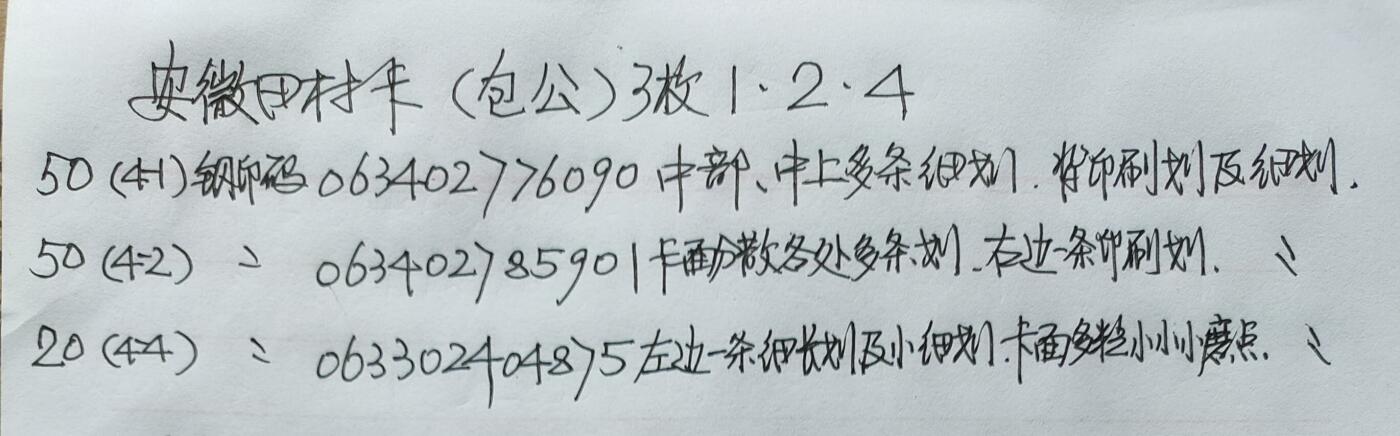 安徽田村卡（包公）3枚1·2·4
50(4-1)钢印码063402776090中部、中上多条细划.背印刷划及细划.
50(4-2) 〃 063402785901卡面分散各处多条划.右边一条印刷划. 〃
20(4-4) 〃 063302404875左边一条细长划及小细划.卡面多粒小小小磨点. 〃